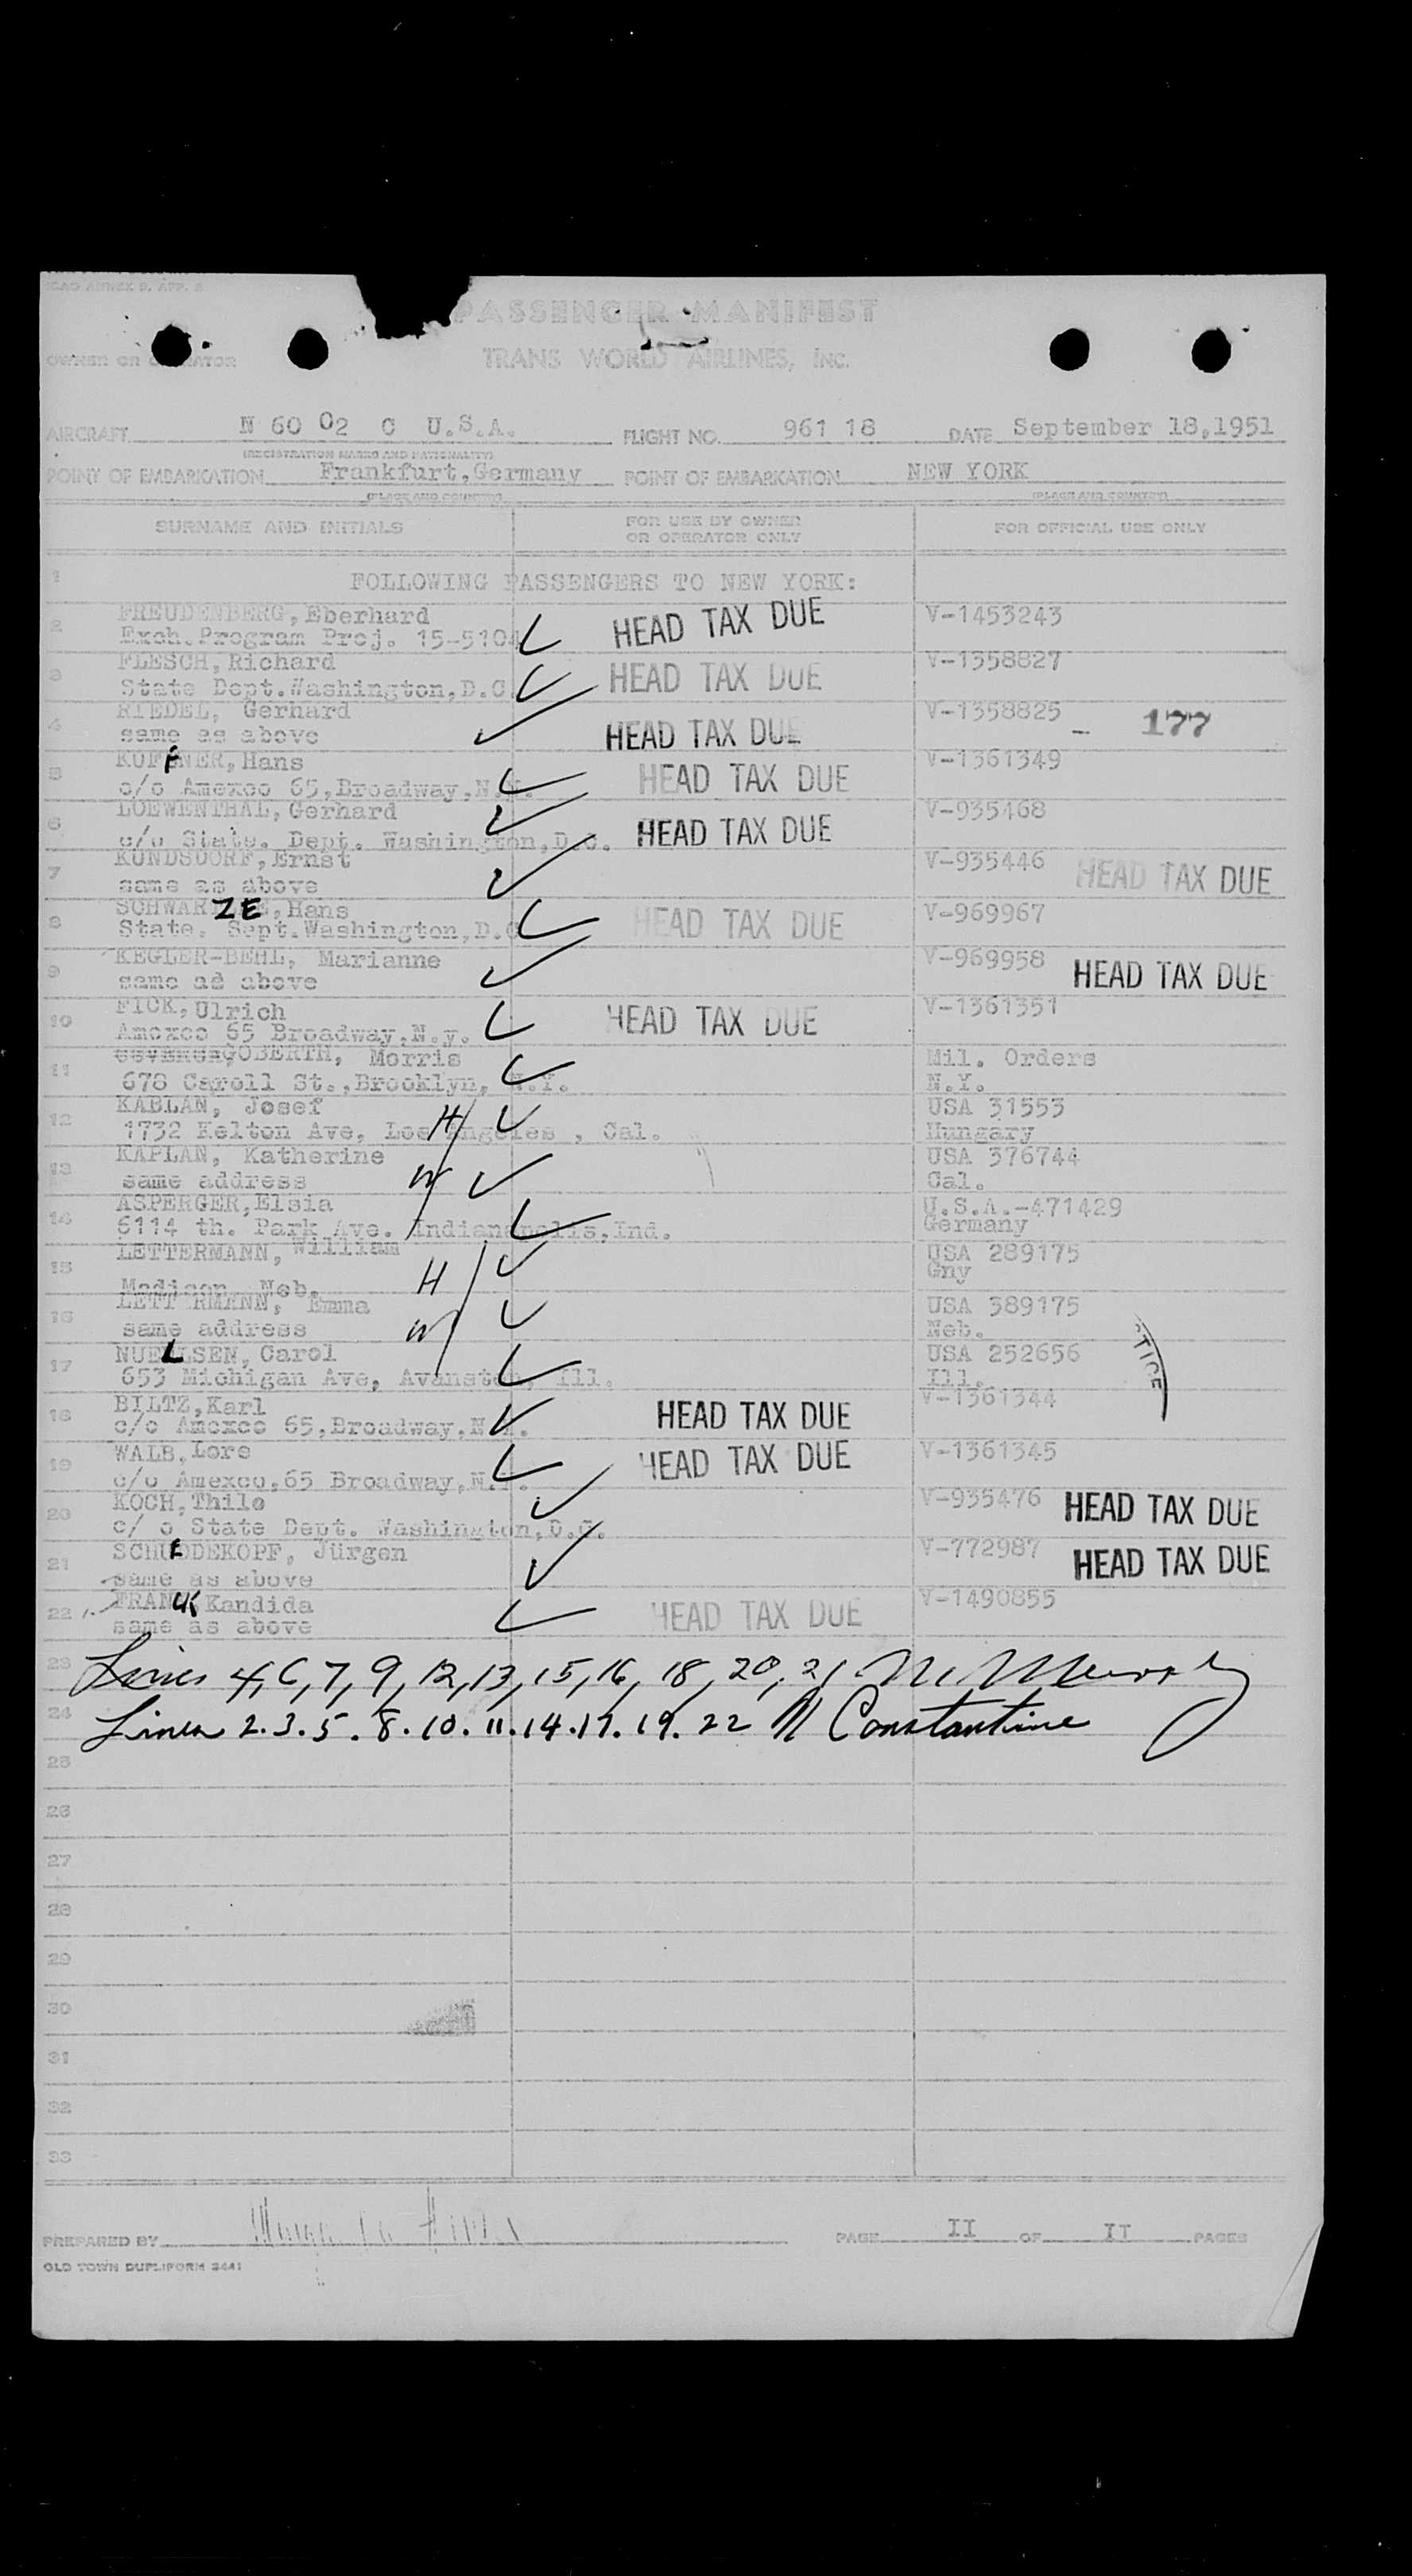 ICAO ANNEX 9, APP. 3
PASSENGER MANIFEST
OWNER OR OPERATOR TRANS WORLD AIRLINES, INC.
AIRCRAFT N 60 02 C U.S.A. FLIGHT NO. 961 18 DATE September 18,1951
(REGISTRATION MARKS AND NATIONALITY)
POINT OF EMBARKATION Frankfurt,Germany POINT OF EMBARKATION NEW YORK
(PLACE AND COUNTRY) (PLACE AND COUNTRY)
SURNAME AND INITIALS FOR USE BY OWNER OR OPERATOR ONLY FOR OFFICIAL USE ONLY
1 FOLLOWING PASSENGERS TO NEW YORK:
2 FREUDENBERG,Eberhard HEAD TAX DUE V-1453243
Exch.Program Proj. 15-5104
3 FLESCH,Richard HEAD TAX DUE V-1358827
State Dept.Washington,D.C.
4 RIEDEL, Gerhard HEAD TAX DUE V-1358825 - 177
same as above
5 KUFFNER,Hans HEAD TAX DUE V-1361349
c/o Amexco 65,Broadway,N.Y.
6 LOEWENTHAL,Gerhard HEAD TAX DUE V-935468
c/o State. Dept. Washington,D.C.
7 KUNDSDORF,Ernst V-935446 HEAD TAX DUE
same as above
8 SCHWARZE,Hans HEAD TAX DUE V-969967
State. Sept.Washington,D.C
9 KEGLER-BEHL, Marianne V-969958 HEAD TAX DUE
same ad above
10 FICK,Ulrich HEAD TAX DUE V-1361351
Amexco 65 Broadway,N.y.
11 GOBERTH, Morris Mil. Orders
678 Caroll St.,Brooklyn, N.Y. N.Y.
12 KABLAN, Josef H USA 31553
1732 Kelton Ave, Los Angeles , Cal. Hungary
13 KAPLAN, Katherine W USA 376744
same address Cal.
14 ASPERGER,Elsia U.S.A.-471429
6114 th. Park Ave. Indianapolis,Ind. Germany
15 LETTERMANN, William H USA 289175
Madison Neb. Gny
16 LETT RMANN, Emma W USA 389175
same address Neb.
17 NUELLSEN, Carol USA 252656
653 Michigan Ave, Avanston, Ill. Ill.
18 BILTZ,Karl HEAD TAX DUE V-1361344
c/o Amexco 65,Broadway,N.Y.
19 WALB,Lore HEAD TAX DUE V-1361345
c/o Amexco,65 Broadway,N.Y.
20 KOCH,Thilo V-935476 HEAD TAX DUE
c/ o State Dept. Washington,D.C.
21 SCHUEDDEKOPF, Jürgen V-772987 HEAD TAX DUE
same as above
22 FRANCK,Kandida HEAD TAX DUE V-1490855
same as above
23 Lines 4,6,7,9,12,13,15,16,18,20,21
24 Lines 2.3.5.8.10.11.14.17.19.22 M Constantine
25
26
27
28
29
30
31
32
33
PREPARED BY PAGE II OF II PAGES
OLD TOWN DUPLIFORM 2441